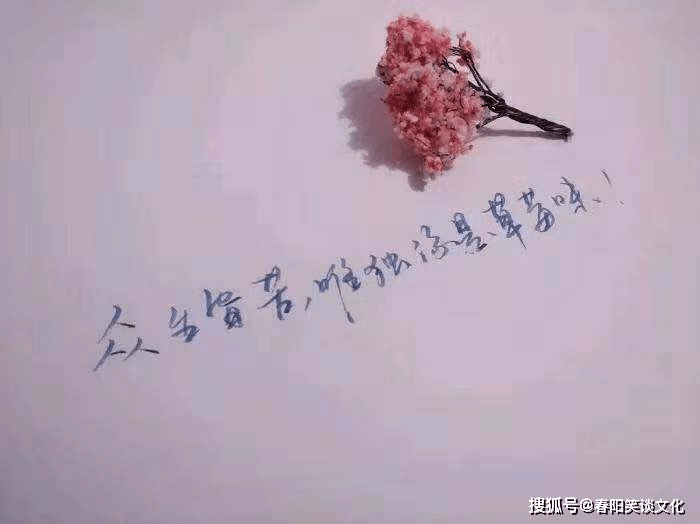 众生皆苦,唯独你是草莓味!
搜狐号@春阳笑谈文化